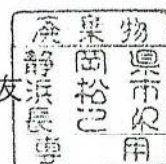 友
廃棄物
静岡県
浜松市
長之印
専用